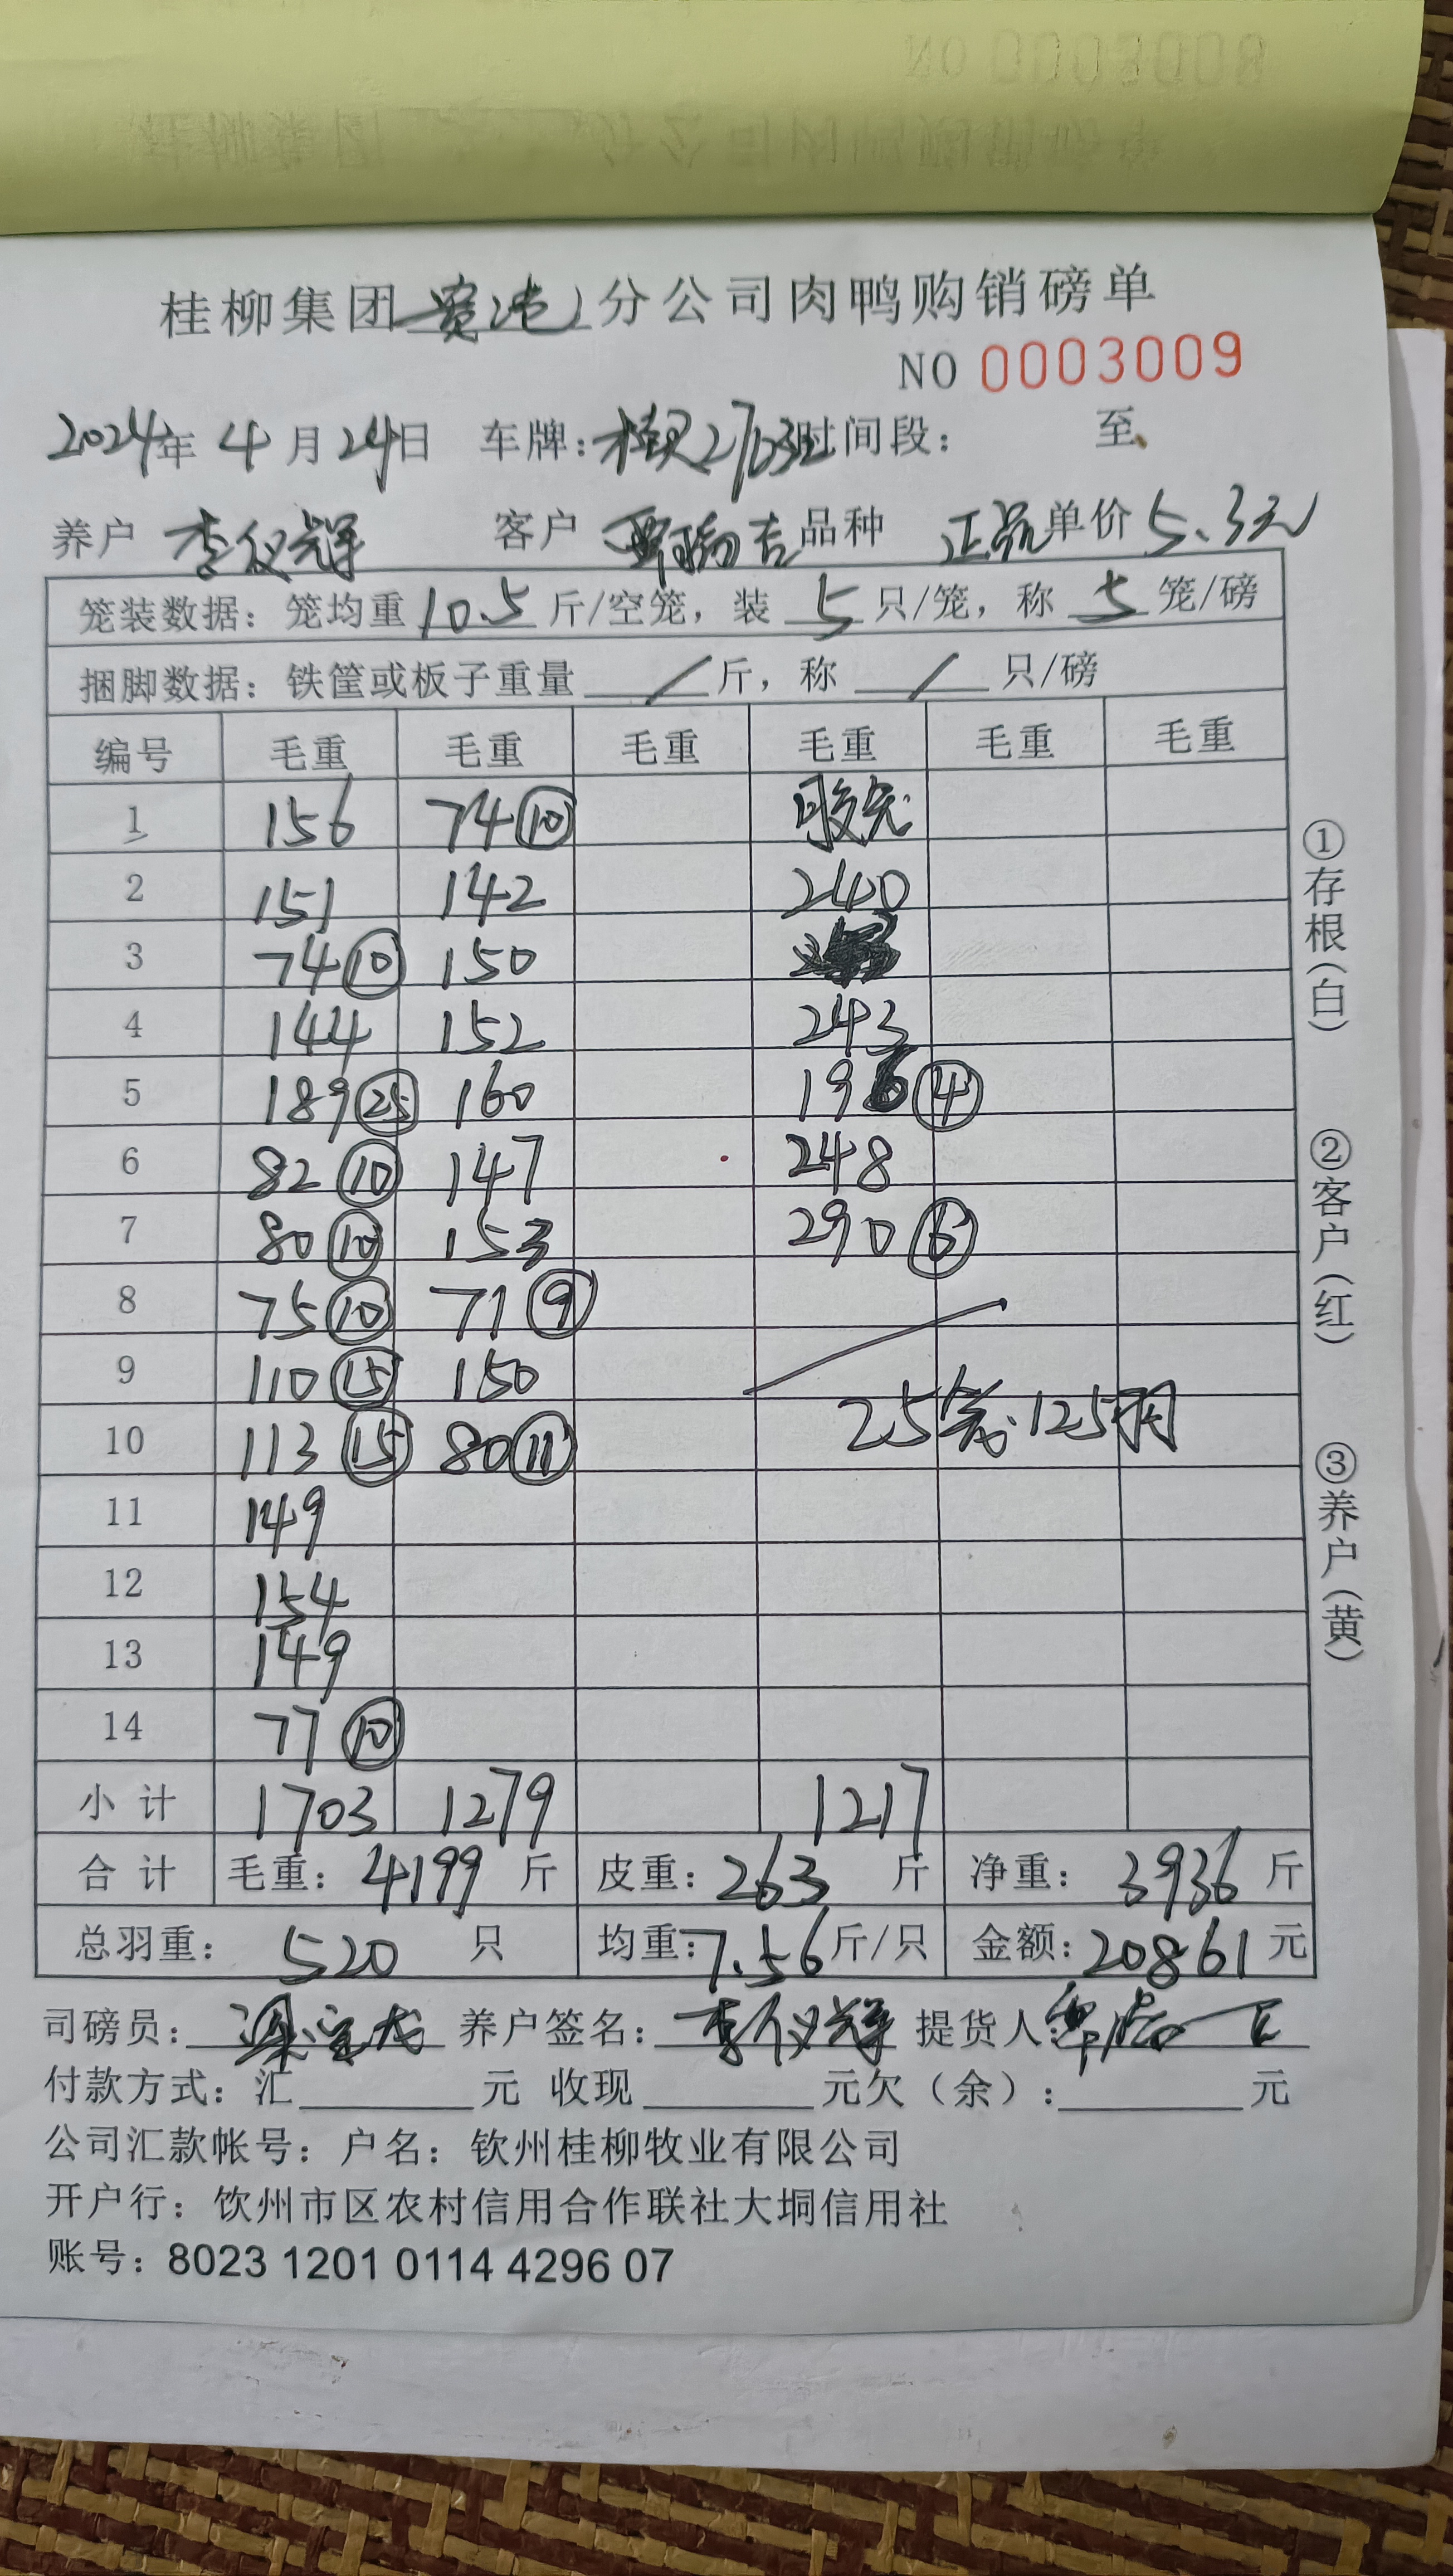 桂柳集团 分公司肉鸭购销磅单
NO 0003009
2024年 4月24日 车牌: 时间段: 至
养户 李仪辉 客户 品种 正品 单价 5.3元
笼装数据: 笼均重 10.5 斤/空笼, 装 5 只/笼, 称 5 笼/磅
捆脚数据: 铁筐或板子重量 / 斤, 称 / 只/磅
编号 毛重 毛重 毛重 毛重 毛重 毛重
1 156 74 ⑩
2 151 142 240
3 74 ⑩ 150
4 144 152 243
5 189 ㉕ 160 196 ④
6 82 ⑩ 147 248
7 80 ⑩ 153 290 ⑥
8 75 ⑩ 71 ⑨
9 110 ⑮ 150
10 113 ⑮ 80 ⑪ 25笼.125羽
11 149
12 154
13 149
14 77 ⑩
小计 1703 1279 1217
合计 毛重: 4199 斤 皮重: 263 斤 净重: 3936 斤
总羽重: 520 只 均重: 7.56 斤/只 金额: 20861 元
司磅员: 养户签名: 李仪辉 提货人:
付款方式: 汇 元 收现 元欠(余): 元
公司汇款帐号: 户名: 钦州桂柳牧业有限公司
开户行: 饮州市区农村信用合作联社大垌信用社
账号: 8023 1201 0114 4296 07
①存根(白)
②客户(红)
③养户(黄)